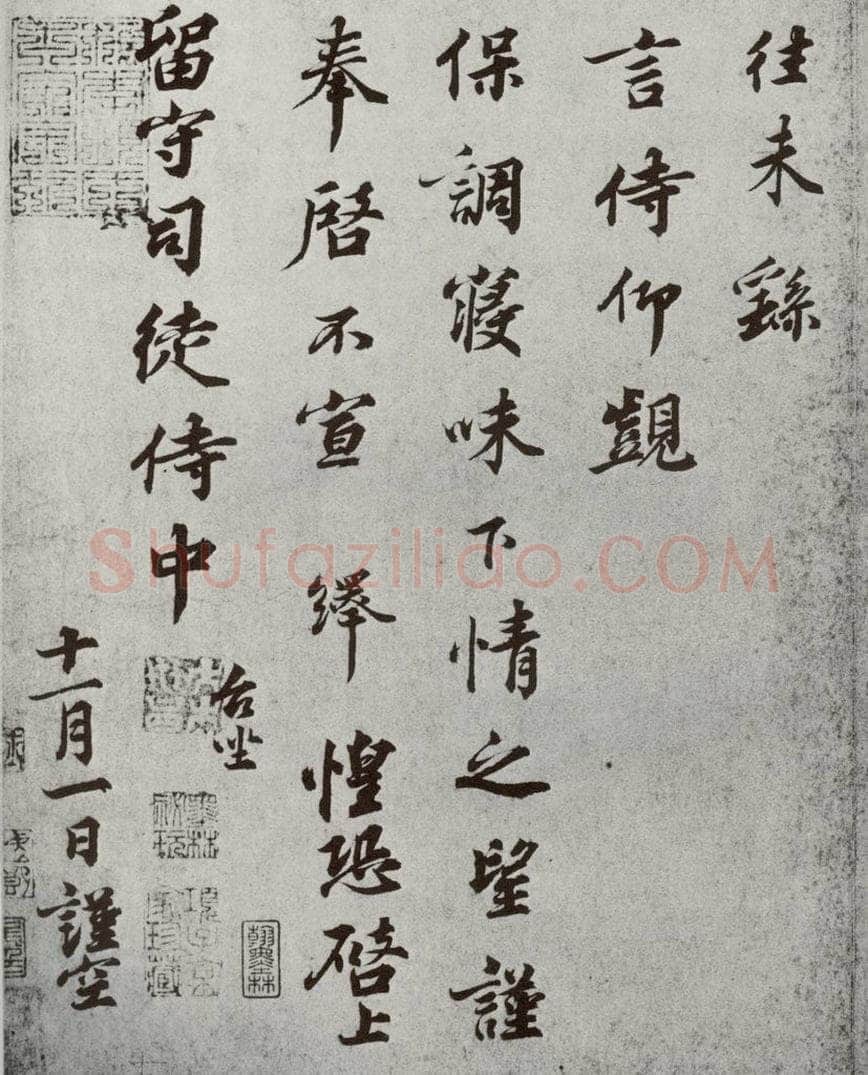 往未繇
言侍仰覬
保調寢味下情之望謹
奉啓不宣 繹惶恐啓上
留守司徒侍中
台坐
十一月一日謹空
Shufaziliao.COM